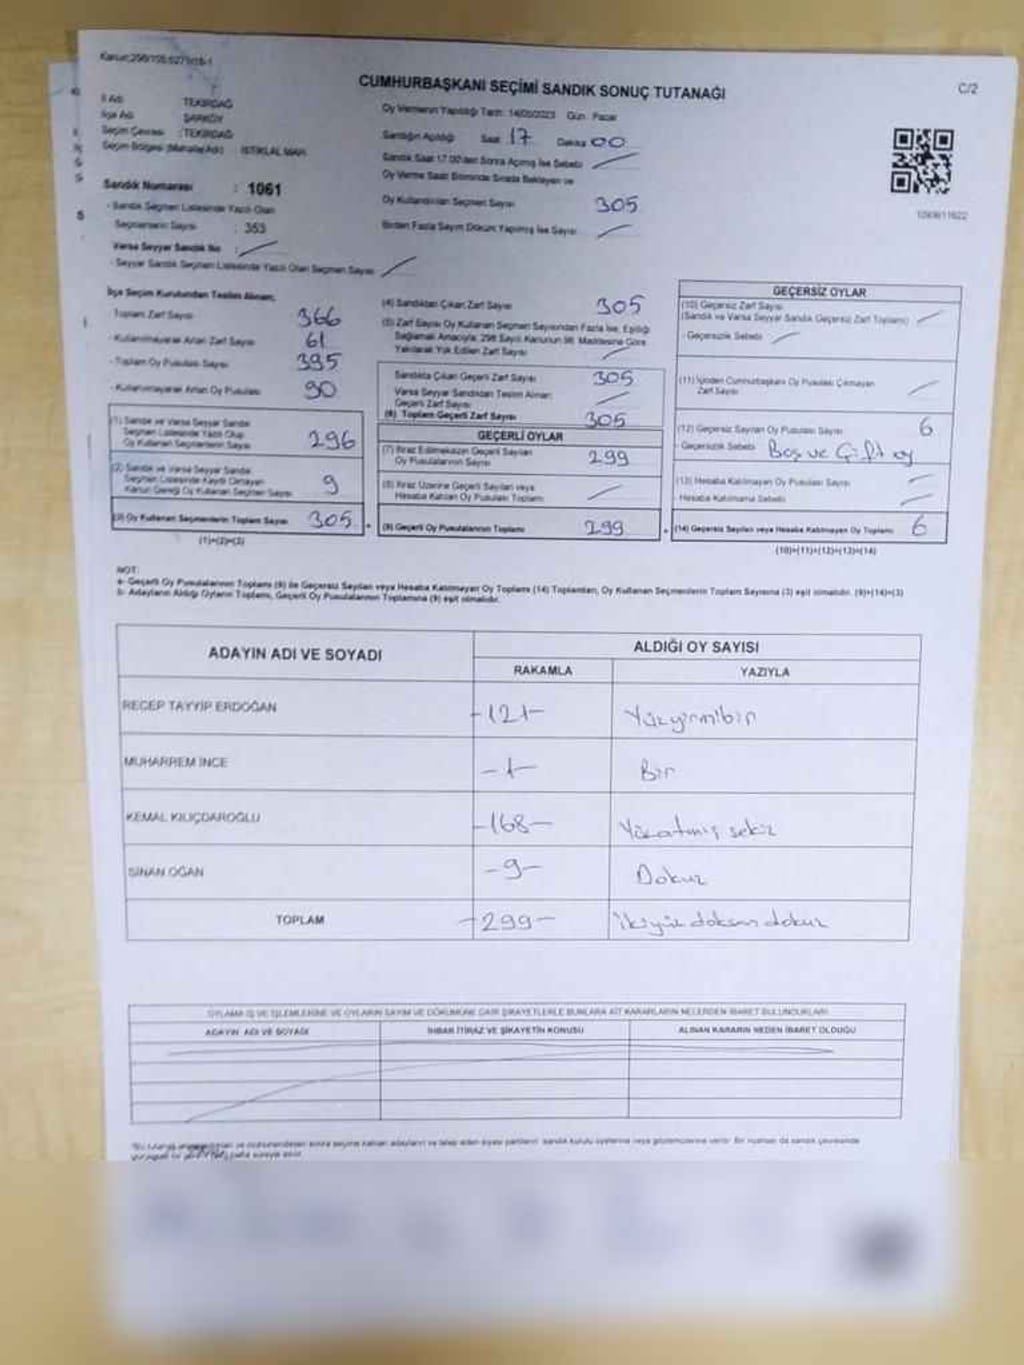 Kanun:298/105.6271/18-1
CUMHURBAŞKANI SEÇİMİ SANDIK SONUÇ TUTANAĞI
C/2
İl Adı TEKİRDAĞ
İlçe Adı ŞARKÖY
Seçim Çevresi : TEKİRDAĞ
Seçim Bölgesi (Mahalle/Adı) : İSTİKLAL MAH.
Sandık Numarası : 1061
- Sandık Seçmen Listesinde Yazılı Olan
Seçmenlerin Sayısı : 353
Varsa Seyyar Sandık No :
- Seyyar Sandık Seçmen Listesinde Yazılı Olan Seçmen Sayısı
Oy Vermenin Yapıldığı Tarih : 14/05/2023 Gün : Pazar
Sandığın Açıldığı Saat 17 Dakika 00
Sandık Saat 17.00'den Sonra Açılmış İse Sebebi
Oy Verme Saati Bitiminde Sırada Bekleyen ve
Oy Kullandırılan Seçmen Sayısı 305
Birden Fazla Sayım Döküm Yapılmış İse Sayısı
İlçe Seçim Kurulundan Teslim Alınan;
Toplam Zarf Sayısı 366
- Kullanılmayarak Artan Zarf Sayısı 61
- Toplam Oy Pusulası Sayısı 395
- Kullanılmayarak Artan Oy Pusulası 90
(1) Sandık ve Varsa Seyyar Sandık
Seçmen Listesinde Yazılı Olup
Oy Kullanan Seçmenlerin Sayısı 296
(2) Sandık ve Varsa Seyyar Sandık
Seçmen Listesinde Kayıtlı Olmayan
Kanun Gereği Oy Kullanan Seçmen Sayısı 9
(3) Oy Kullanan Seçmenlerin Toplam Sayısı 305
(1)+(2)=(3)
(4) Sandıktan Çıkan Zarf Sayısı 305
(5) Zarf Sayısı Oy Kullanan Seçmen Sayısından Fazla İse, Eşitliği
Sağlamak Amacıyla; 298 Sayılı Kanunun 98. Maddesine Göre
Yakılarak Yok Edilen Zarf Sayısı
Sandıkta Çıkan Geçerli Zarf Sayısı 305
Varsa Seyyar Sandıktan Teslim Alınan
Geçerli Zarf Sayısı
(6) Toplam Geçerli Zarf Sayısı 305
GEÇERLİ OYLAR
(7) İtiraz Edilmeksizin Geçerli Sayılan
Oy Pusulalarının Sayısı 299
(8) İtiraz Üzerine Geçerli Sayılan veya
Hesaba Katılan Oy Pusulası Toplamı
(9) Geçerli Oy Pusulalarının Toplamı 299
GEÇERSİZ OYLAR
(10) Geçersiz Zarf Sayısı
(Sandık ve Varsa Seyyar Sandık Geçersiz Zarf Toplamı)
- Geçersizlik Sebebi
(11) İçinden Cumhurbaşkanı Oy Pusulası Çıkmayan
Zarf Sayısı
(12) Geçersiz Sayılan Oy Pusulası Sayısı 6
- Geçersizlik Sebebi Boş ve Çift oy
(13) Hesaba Katılmayan Oy Pusulası Sayısı
- Hesaba Katılmama Sebebi
(14) Geçersiz Sayılan veya Hesaba Katılmayan Oy Toplamı 6
(10)+(11)+(12)+(13)=(14)
NOT:
a- Geçerli Oy Pusulalarının Toplamı (9) ile Geçersiz Sayılan veya Hesaba Katılmayan Oy Toplamı (14) Toplamları, Oy Kullanan Seçmenlerin Toplam Sayısına (3) eşit olmalıdır. (9)+(14)=(3)
b- Adayların Aldığı Oyların Toplamı, Geçerli Oy Pusulalarının Toplamına (9) eşit olmalıdır.
ADAYIN ADI VE SOYADI ALDIĞI OY SAYISI
RAKAMLA YAZIYLA
RECEP TAYYİP ERDOĞAN -121- Yüzyirmibir
MUHARREM İNCE -1- Bir
KEMAL KILIÇDAROĞLU -168- Yüzatmış sekiz
SİNAN OĞAN -9- Dokuz
TOPLAM -299- İkiyüz doksan dokuz
OYLAMA İŞ VE İŞLEMLERİNE VE OYLARIN SAYIM VE DÖKÜMÜNE DAİR ŞİKAYETLERLE BUNLARA AİT KARARLARIN NELERDEN İBARET BULUNDUKLARI
ADAYIN ADI VE SOYADI İHBAR İTİRAZ VE ŞİKAYETİN KONUSU ALINAN KARARIN NEDEN İBARET OLDUĞU